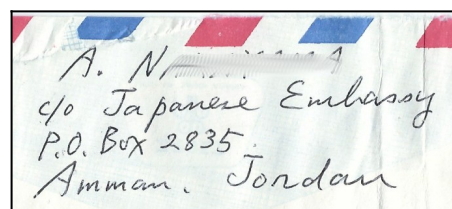 A.
c/o Japanese Embassy
P.O. Box 2835.
Amman. Jordan